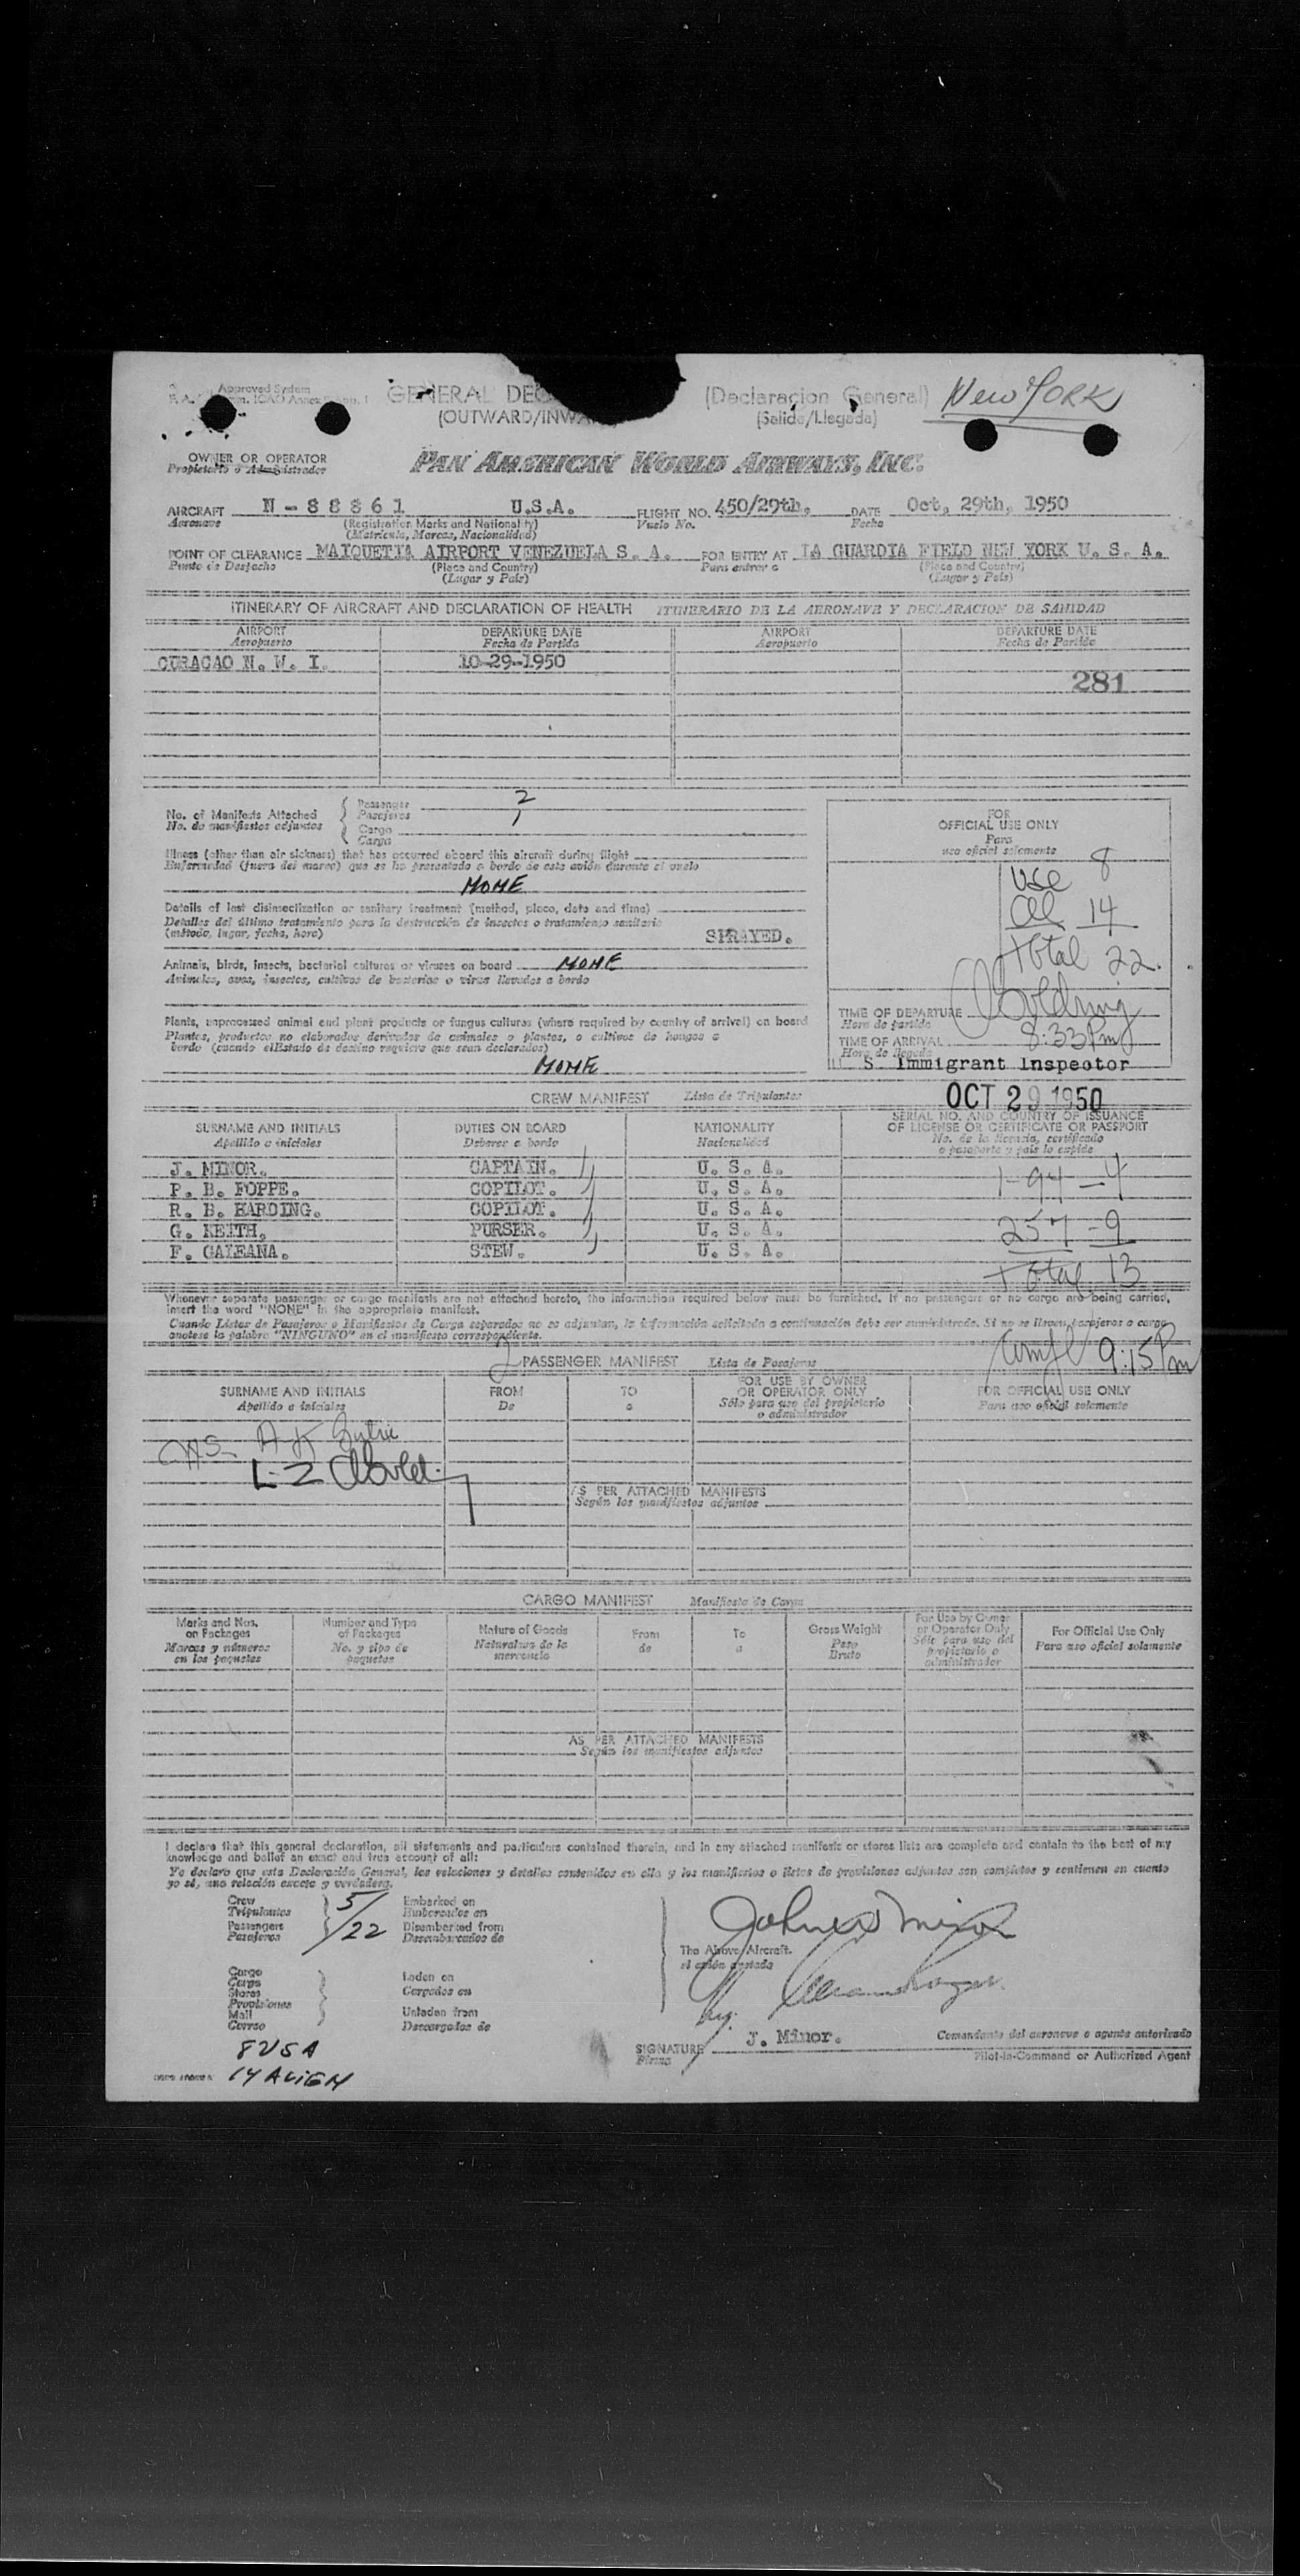 Approved System
GENERAL DEC (Declaracion General) New YORK
(OUTWARD/INWA (Salida/Llegada)
OWNER OR OPERATOR PAN AMERICAN WORLD AIRWAYS, INC.
Propietario o Administrador
AIRCRAFT N-88861 U.S.A. FLIGHT NO. 450/29th. DATE Oct, 29th, 1950
Aeronave (Registration Marks and Nationality) Vuelo No. Fecha
(Matricula, Marcas, Nacionalidad)
POINT OF CLEARANCE MAIQUETIA AIRPORT VENEZUELA S. A. FOR ENTRY AT LA GUARDIA FIELD NEW YORK U. S. A.
Punto de Despacho (Place and Country) Para entrar a (Place and Country)
(Lugar y País) (Lugar y País)
ITINERARY OF AIRCRAFT AND DECLARATION OF HEALTH ITINERARIO DE LA AERONAVE Y DECLARACION DE SANIDAD
AIRPORT DEPARTURE DATE AIRPORT DEPARTURE DATE
Aeropuerto Fecha de Partida Aeropuerto Fecha de Partida
CURACAO N. W. I. 10-29-1950
281
No. of Manifests Attached Passenger 2
No. de manifiestos adjuntos Pasajeros
Cargo 1
Carga
Illness (other than air sickness) that has occurred aboard this aircraft during flight
Enfermedad (fuera del mareo) que se ha presentado a bordo de este avión durante el vuelo
NONE
Details of last disinsectization or sanitary treatment (method, place, date and time)
Detalles del último tratamiento para la destrucción de insectos o tratamiento sanitario
(método, lugar, fecha, hora) SPRAYED.
Animals, birds, insects, bacterial cultures or viruses on board NONE
Animales, aves, insectos, cultivos de bacterias o virus llevados a bordo
Plants, unprocessed animal and plant products or fungus cultures (where required by country of arrival) on board
Plantas, productos no elaborados derivados de animales o plantas, o cultivos de hongos a
bordo (cuando elEstado de destino requiere que sean declarados)
NONE
FOR
OFFICIAL USE ONLY
Para
uso oficial solamente
USC 8
All 14
Total 22.
Goldring
TIME OF DEPARTURE
Hora de partida
8:33 Pm
TIME OF ARRIVAL
Hora de llegada
U. S. Immigrant Inspector
OCT 29 1950
CREW MANIFEST Lista de Tripulantes
SURNAME AND INITIALS DUTIES ON BOARD NATIONALITY SERIAL NO. AND COUNTRY OF ISSUANCE
OF LICENSE OR CERTIFICATE OR PASSPORT
Apellido e iniciales Deberes a bordo Nacionalidad No. de la licencia, certificado
o pasaporte y país lo expide
J. MINOR. CAPTAIN. U. S. A.
P. B. POPPE. COPILOT. U. S. A. 1-94-4
R. B. HARDING. COPILOT. U. S. A.
G. KEITH. PURSER. U. S. A. 257-9
F. GALEANA. STEW. U. S. A.
Total 13
Whenever separate passenger or cargo manifests are not attached hereto, the information required below must be furnished. If no passengers or no cargo are being carried,
insert the word "NONE" in the appropriate manifest.
Cuando Listas de Pasajeros o Manifiestos de Carga separados no se adjuntan, la información solicitada a continuación debe ser suministrada. Si no se llevan pasajeros o carga
anótese la palabra "NINGUNO" en el manifiesto correspondiente.
2 PASSENGER MANIFEST Lista de Pasajeros Compl 9:15 Pm
SURNAME AND INITIALS FROM TO FOR USE BY OWNER
OR OPERATOR ONLY FOR OFFICIAL USE ONLY
Apellido e iniciales De a Sólo para uso del propietario
o administrador Para uso oficial solamente
AS PER ATTACHED MANIFESTS
Según los manifiestos adjuntos
CARGO MANIFEST Manifiesto de Carga
Marks and Nos.
on Packages
Marcas y números
en los paquetes
Number and Type
of Packages
No. y tipo de
paquetes
Nature of Goods
Naturaleza de la
mercancía
From
de
To
a
Gross Weight
Peso
Bruto
For Use by Owner
or Operator Only
Sólo para uso del
propietario o
administrador
For Official Use Only
Para uso oficial solamente
AS PER ATTACHED MANIFESTS
Según los manifiestos adjuntos
I declare that this general declaration, all statements and particulars contained therein, and in any attached manifests or stores lists are complete and contain to the best of my
knowledge and belief an exact and true account of all:
Yo declaro que esta Declaración General, las relaciones y detalles contenidos en ella y los manifiestos o listas de provisiones adjuntos son completos y contienen en cuanto
yo sé, una relación exacta y verdadera.
Crew 5 Embarked on
Tripulantes Embarcados en
Passengers 22 Disembarked from
Pasajeros Desembarcados de
The Above Aircraft.
el avión
Cargo
Carga Laden on
Stores Cargados en
Provisiones
Mail Unladen from
Correo Descargados de
SIGNATURE J. Minor. Comandante del aeronave o agente autorizado
Firma Pilot-in-Command or Authorized Agent
8 USA
14 ALIEN